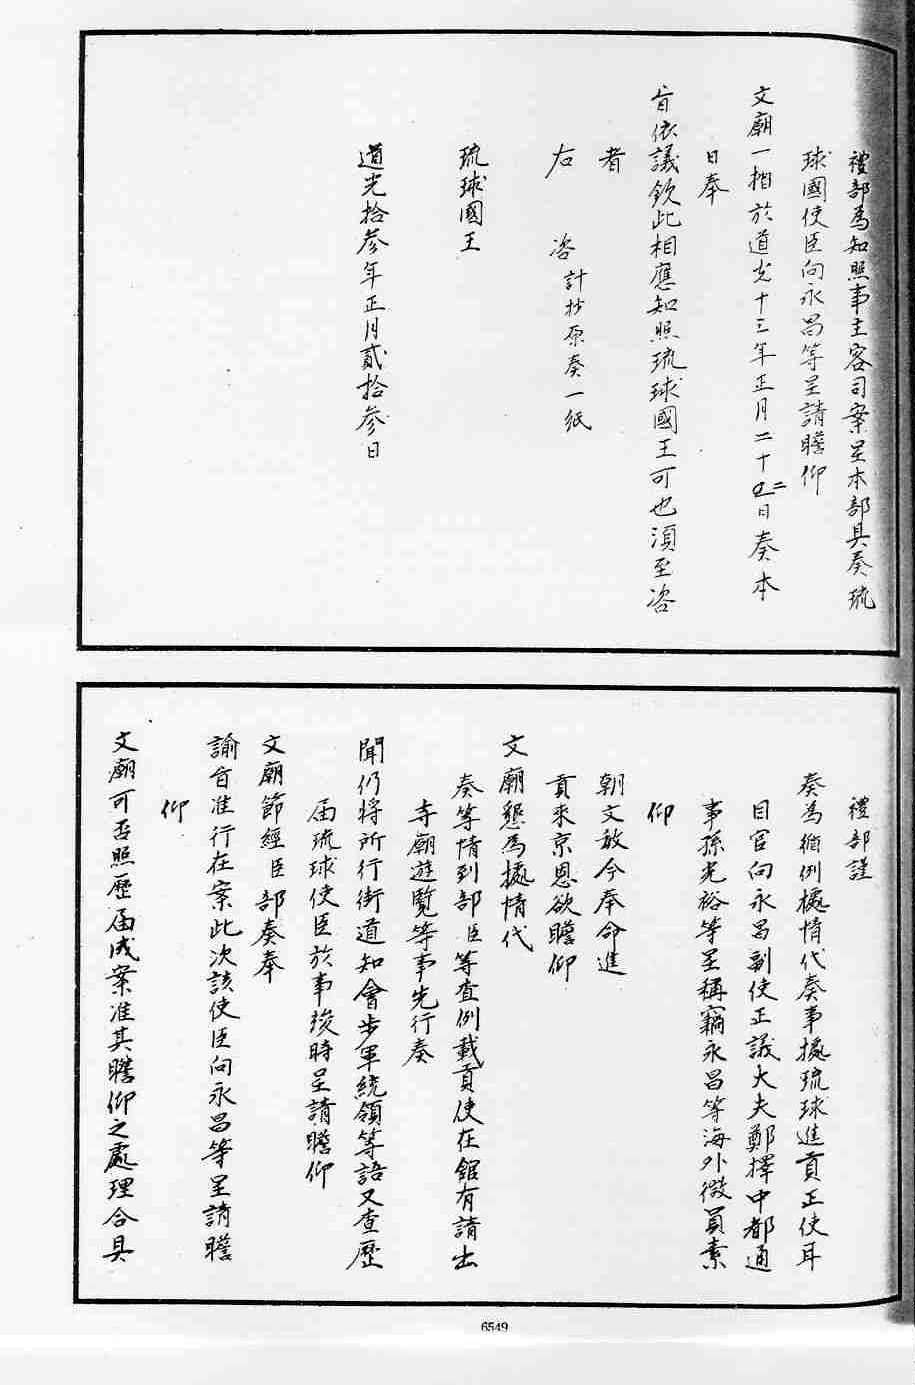 禮部為知照事主客司案呈本部具奏琉
球國使臣向永昌等呈請瞻仰
文廟一摺於道光十三年正月二十二日奏本
日奉
旨依議欽此相應知照琉球國王可也須至咨
者
右　咨　計抄原奏一紙
琉球國王
道光拾叄年正月貳拾叄日
禮部謹
奏為循例據情代奏事據琉球進貢正使耳
目官向永昌副使正議大夫鄭擇中都通
事孫光裕等呈稱竊永昌等海外微員素
仰
朝文放今奉命進
貢來京恩欲瞻仰
文廟懇為據情代
奏等情到部臣等查例載貢使在館有請出
寺廟遊覽等事先行奏
聞仍將所行街道知會步軍統領等語又查歷
届琉球使臣於事竣時呈請瞻仰
文廟節經臣部奏奉
諭旨准行在案此次該使臣向永昌等呈請瞻
仰
文廟可否照歷届成案准其瞻仰之處理合具
6549